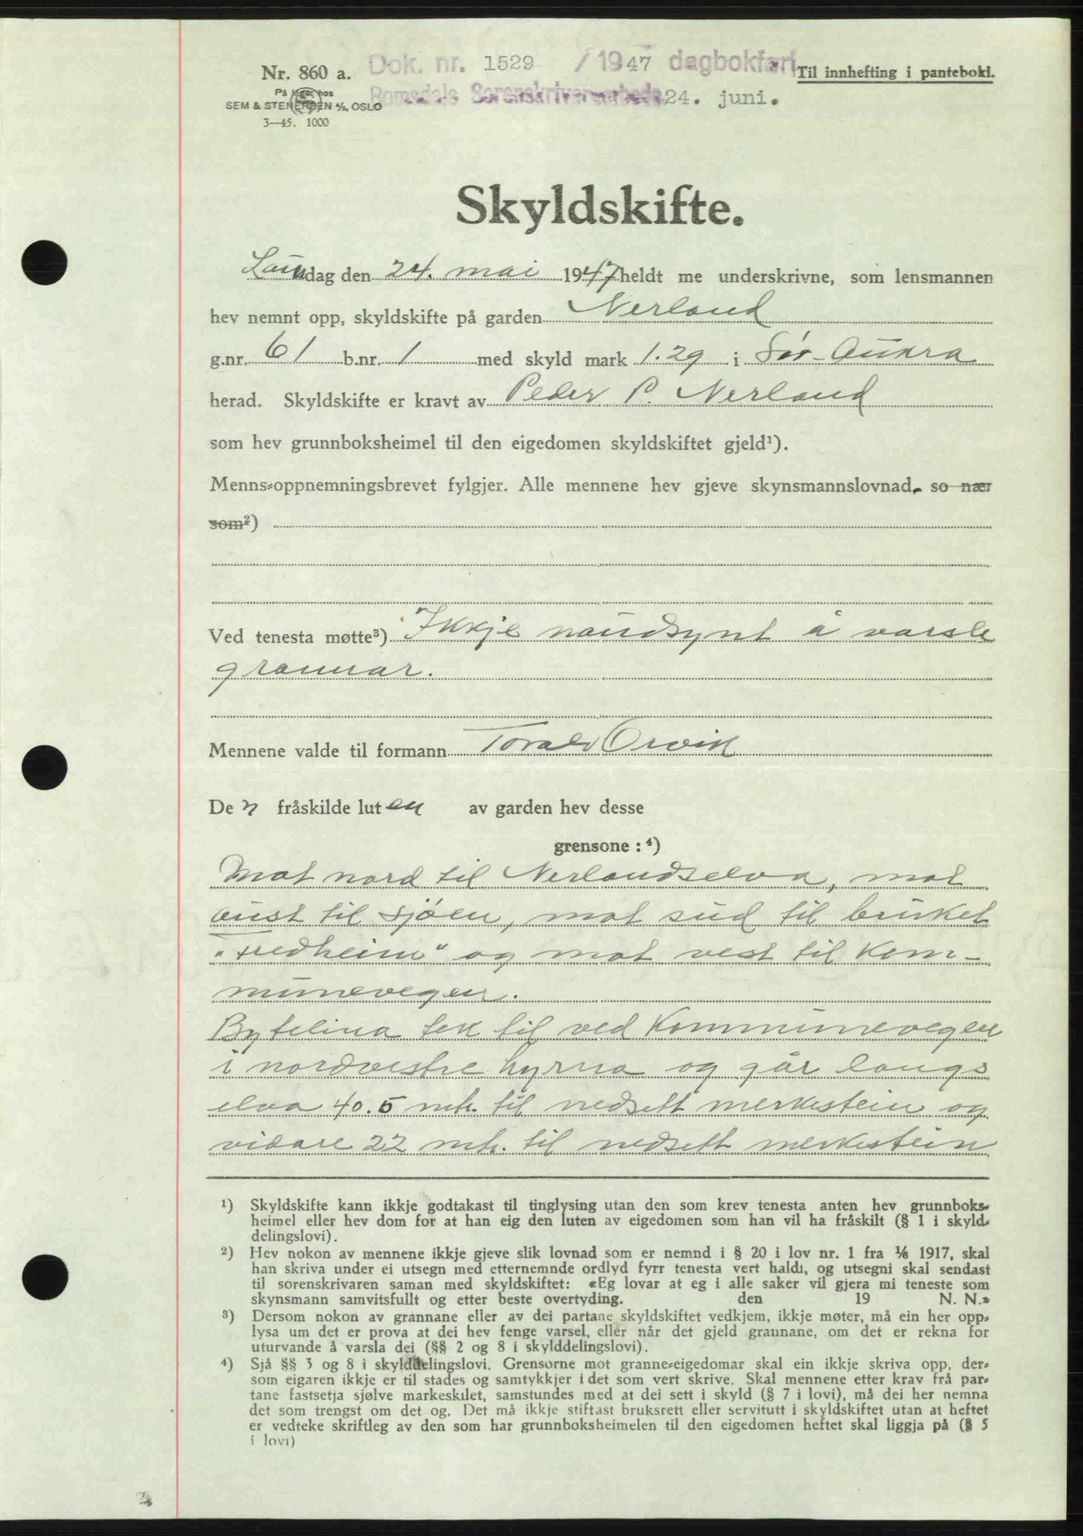 Nr. 860 a. Dok. nr. 1529 / 1947 dagbokført Til innhefting i pantebok1.
På lager hos Romsdals Sorenskriverembede 24. juni.
SEM & STENERSEN A/S, OSLO
3—45. 1000
Skyldskifte.
Laurdag den 24. mai 1947 heldt me underskrivne, som lensmannen
hev nemnt opp, skyldskifte på garden Nerland
g.nr. 61 b.nr. 1 med skyld mark 1.29 i Sør-Aukra
herad. Skyldskifte er kravt av Peder P. Nerland
som hev grunnboksheimel til den eigedomen skyldskiftet gjeld¹).
Menns-oppnemningsbrevet fylgjer. Alle mennene hev gjeve skynsmannslovnad. so nær
som²)
Ved tenesta møtte³) Ikkje naudsynt å varsle
grannar.
Mennene valde til formann Torald Orvik
De n fråskilde luten av garden hev desse
grensone : ⁴)
Mot nord til Nerlandselva, mot
aust til sjøen, mot sud til bruket
"Fredheim" og mot vest til kom-
munevegen.
Bytelina tek til ved Kommunevegen
i nordvestre hyrna og går langs
elva 40.5 mtr. til nedsett merkestein og
vidare 22 mtr. til nedsett merkestein
¹) Skyldskifte kann ikkje godtakast til tinglysing utan den som krev tenesta anten hev grunnboks-
heimel eller hev dom for at han eig den luten av eigedomen som han vil ha fråskilt (§ 1 i skyld-
delingslovi).
²) Hev nokon av mennene ikkje gjeve slik lovnad som er nemnd i § 20 i lov nr. 1 fra 1/6 1917, skal
han skriva under ei utsegn med etternemnde ordlyd fyrr tenesta vert haldi, og utsegni skal sendast
til sorenskrivaren saman med skyldskiftet: «Eg lovar at eg i alle saker vil gjera mi teneste som
skynsmann samvitsfullt og etter beste overtyding. den 19 N. N.»
³) Dersom nokon av grannane eller av dei partane skyldskiftet vedkjem, ikkje møter, må ein her opp-
lysa um det er prova at dei hev fenge varsel, eller når det gjeld grannane, om det er rekna for
uturvande å varsla dei (§§ 2 og 8 i skylddelingslovi).
⁴) Sjå §§ 3 og 8 i skylddelingslovi. Grensorne mot granne-eigedomar skal ein ikkje skriva opp, der-
som eigaren ikkje er til stades og samtykkjer i det som vert skrive. Skal mennene etter krav frå par-
tane fastsetja sjølve markeskilet, samstundes med at dei sett i skyld (§ 7 i lovi), må dei her nemna
det som trengst om det og. Det må ikkje stiftast bruksrett eller servitutt i skyldskiftet utan at heftet
er vedteke skriftleg av den som har grunnboksheimelen til den eigedomen heftet skal liggja på (§ 5
i lovi)